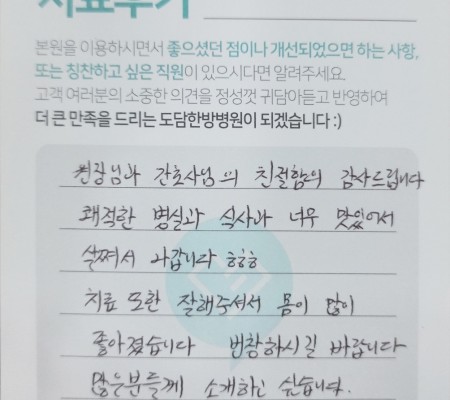 치료후기
본원을 이용하시면서 좋으셨던 점이나 개선되었으면 하는 사항,
또는 칭찬하고 싶은 직원이 있으시다면 알려주세요.
고객 여러분의 소중한 의견을 정성껏 귀담아듣고 반영하여
더 큰 만족을 드리는 도담한방병원이 되겠습니다 :)
원장님과 간호사님의 친절함에 감사드립니다
쾌적한 병실과 식사가 너무 맛있어서
살쪄서 나갑니다 ㅎㅎㅎ
치료 또한 잘해주셔서 몸이 많이
좋아졌습니다 번창하시길 바랍니다
많은분들께 소개하고 싶습니다.